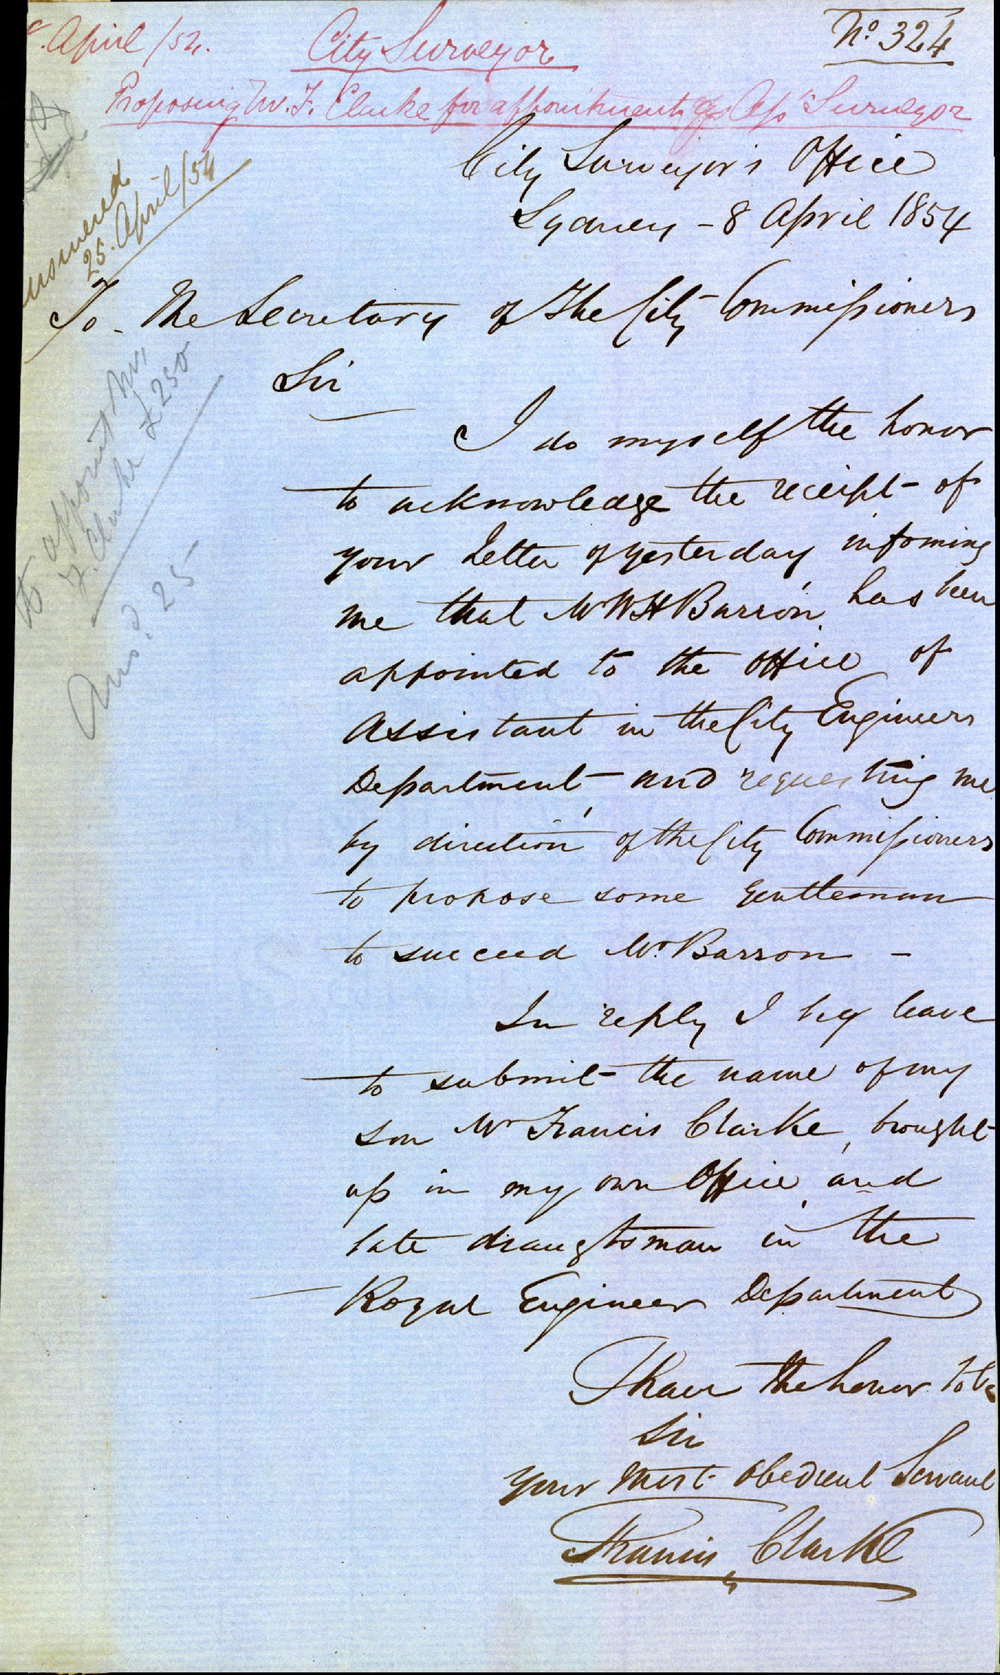 8. April /54.
City Surveyor
No. 324
Proposing Mr. F. Clarke for appointment as Asst Surveyor
City Surveyor's Office
Sydney - 8 April 1854
Answered
25. April/54
To - The Secretary of The City Commissioners
Sir
To appoint Mr.
F. Clarke £250
Ansd. 25
I do myself the honor
to acknowledge the receipt of
your letter of yesterday infoming
me that Mr W H Barron has been
appointed to the office of
Assistant in the City Engineers
Department and requesting me
by direction of the City Commissioners
to propose some gentleman
to succeed Mr. Barron -
In reply I beg leave
to submit the name of my
son Mr Francis Clarke, brought
up in my own Office and
late draugtsman in the
Royal Engineer Department
I have the honor to be
Sir
your most obedient Servant
Francis Clarke